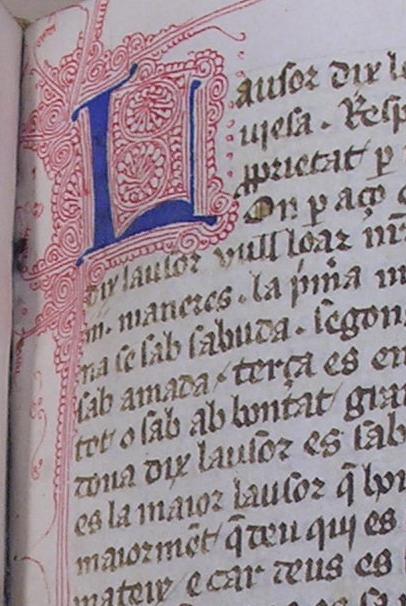 Lausor dix le
uiesa. Resp
pprietat p
On p aço
dix lausor vull loar
m. maneres. la pma
na se sab sabuda. segon
sab amada. terça es en
tet o sab ab bontat gran
dona dix lausor es sab
es la maior lausor q̃
maiorment q̃ deu qui es
mateix e car deus es